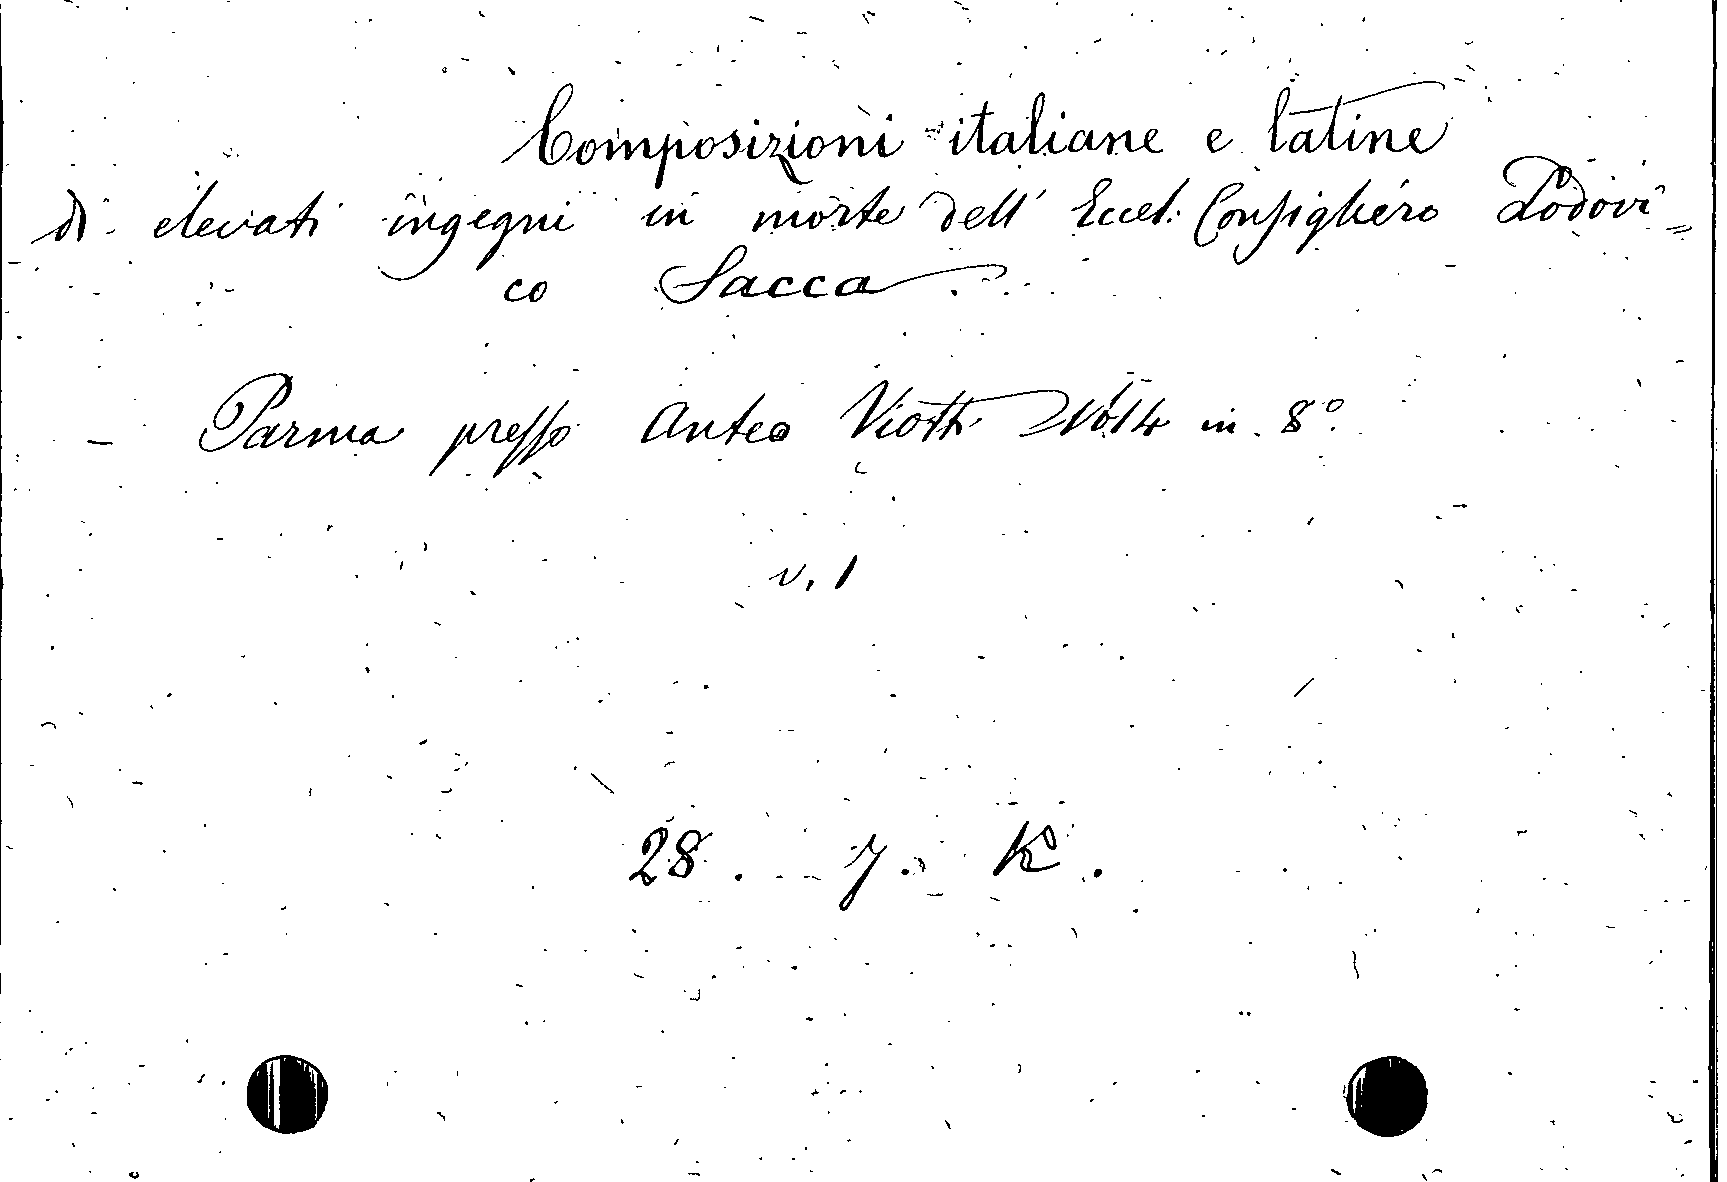 Composizioni italiane e latine
di elevati ingegni in morte dell' Eccel. Consigliero Lodovi=
co Sacca
Parma presso Anteo Viotti 1614 in 8°
v. 1
28. 7. K.